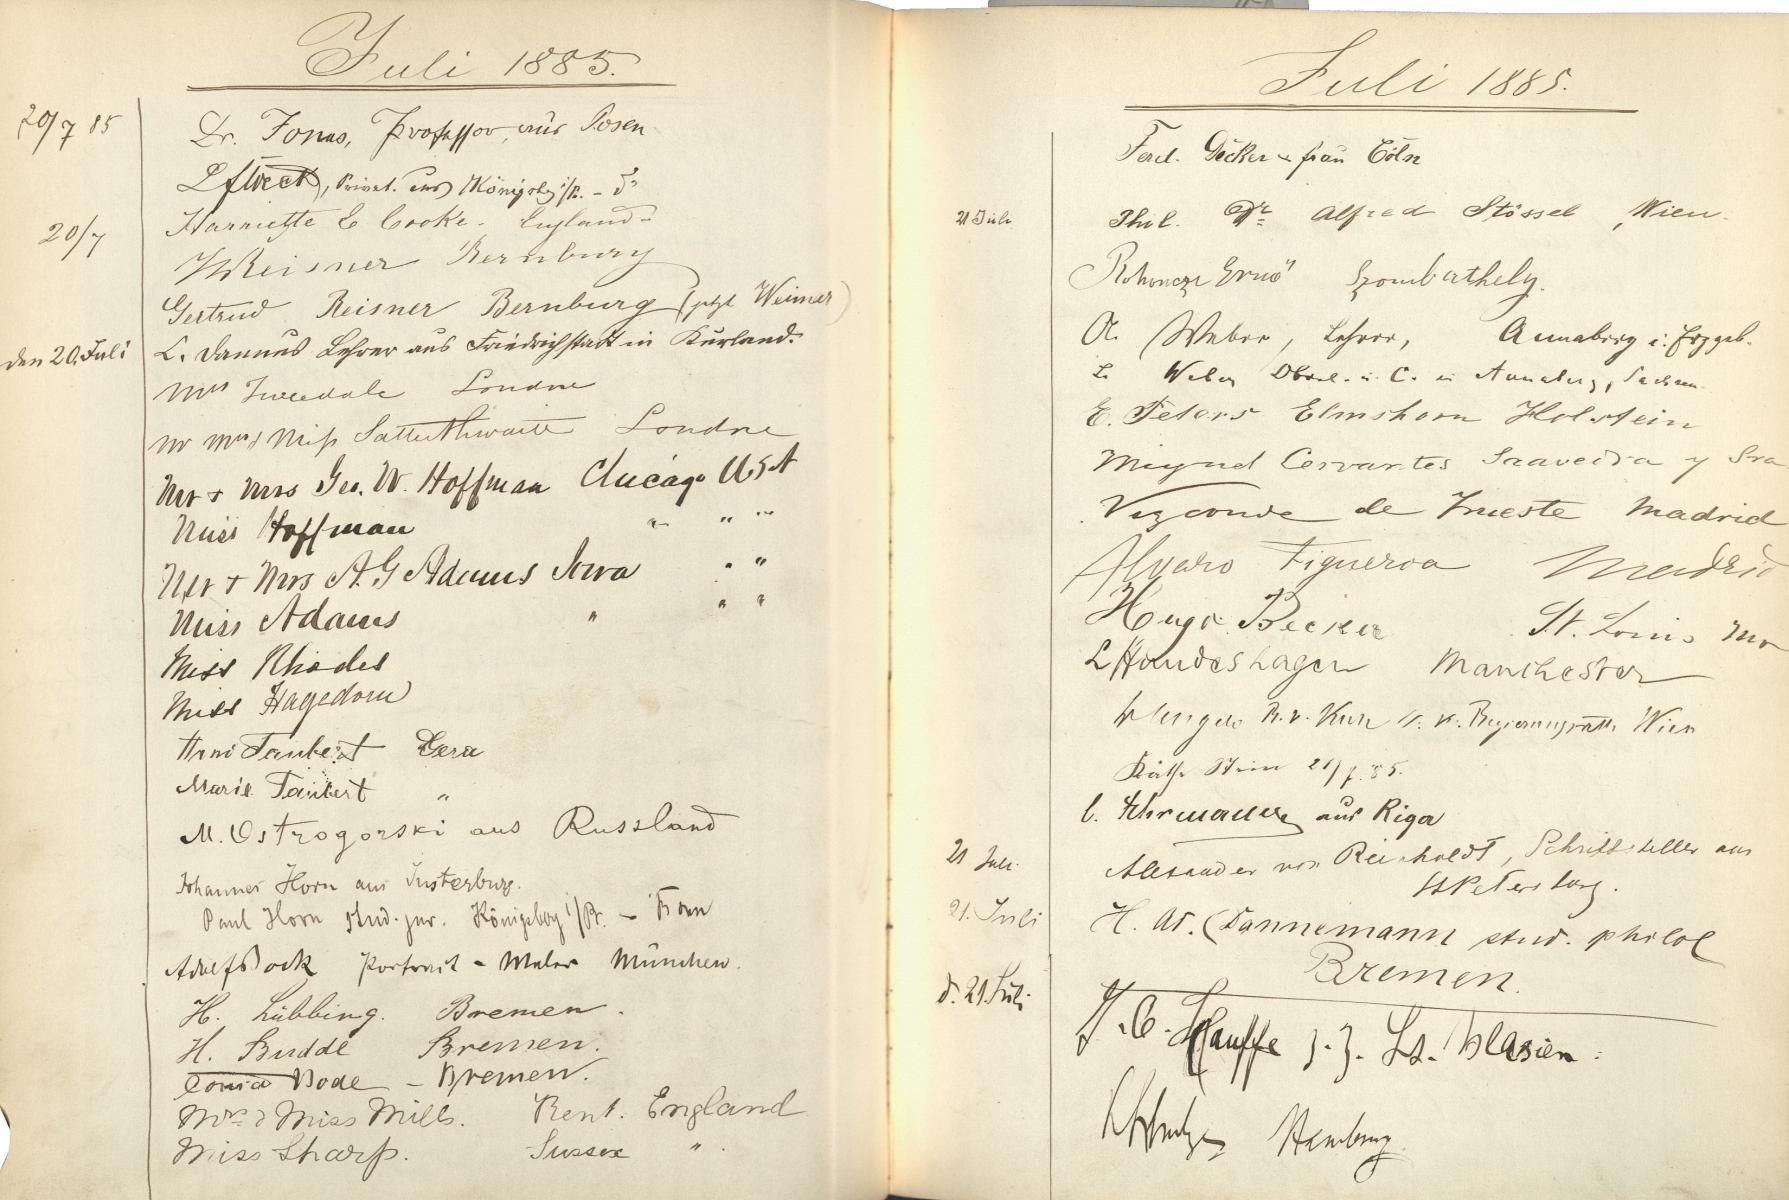 Juli 1885.
20/7 85 Dr. Jonas, Professor, aus Posen
Privat. aus Königsbg i/Pr. -
20/7 Harriette E Cooke - England -
Reisner Bernburg
Gertrud Reisner Bernburg (jetzt Weimar)
den 20. Juli C. Dannus Lehrer aus Friedrichstadt in Kurland.
Mrs Tweedale Londre
Mr Mrs & Miss Satterthwaite Londre
Mr + Mrs Geo. W. Hoffman Chicago USA
Miss Hoffman " " "
Mr + Mrs A. G Adams Iowa " "
Miss Adams " " "
Miss Rhodes
Miss Hagedorn
Taubert Gera
Marie Taubert "
M. Ostrogorski aus Russland
Johannes Horn aus Insterburg.
Paul Horn stud. jur. Königsbg i/Pr. -
Adolf Bock Portrait - Maler München.
H. Lübbing. Bremen.
H. Budde Bremen.
Bode - Bremen.
Mrs & Miss Mills. Kent. England
Miss Sharp. Sussex " .
Juli 1885.
Ferd. Göcker u frau Cöln
21 Juli Phil. Dr. Alfred Stössel, Wien.
Rohonczy Ernő Szombathely.
A. Weber, Lehrer, Annaberg i. Erzgeb.
Weber in Annaberg, Sachsen.
E. Peters Elmshorn Holstein
Miguel Cervantes Saavedra y Sra
Vizconde de Irueste Madrid
Alvaro Figueroa Madrid
Hugo Becker St. Louis Mo
L Hundeshagen Manchester
k. k. Regierungsrath Wien
Käthe Stein 21/7. 85.
C. Ehrmann aus Riga
21 Juli. Alexander von Reinholdt, Schriftsteller aus
St Petersburg.
21. Juli H. W. Dannemann stud. philol
Bremen.
d. 21. Juli J. C. Hauffe z. Z. St. Blasien.
Hamburg.